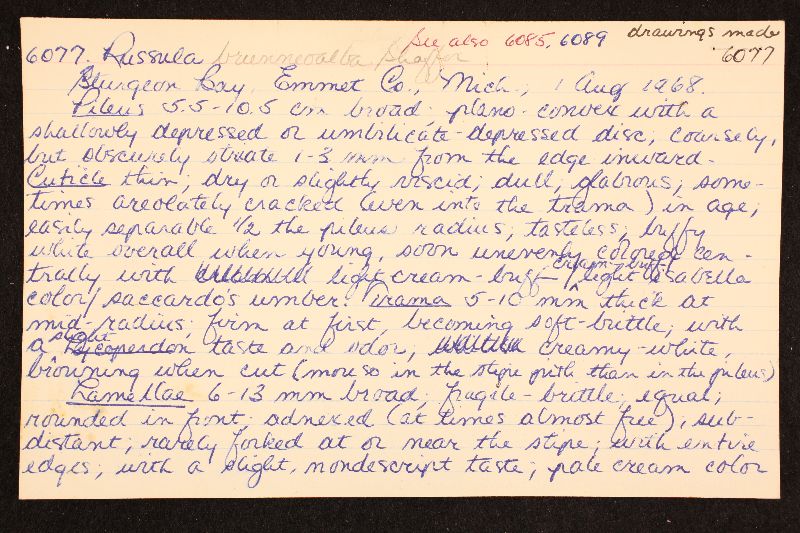 See also 6085, 6089 drawings made
6077
6077. Russula brunneoalba Shaffer
Sturgeon Bay, Emmet Co., Mich., 1 Aug 1968.
Pileus 5.5-10.5 cm broad; plano-convex with a
shallowly depressed or umbilicate-depressed disc; coarsely,
but obscurely striate 1-3 mm from the edge inward.
Cuticle thin; dry or slightly viscid; dull; glabrous; some-
times areolately cracked (even into the trama) in age;
easily separable 1/2 the pileus radius; tasteless; buffy
white overall when young, soon unevenly colored cen-
trally with light cream-buff, cream-buff, light isabella
color, saccardo's umber. Trama 5-10 mm thick at
mid-radius; firm at first, becoming soft-brittle; with
a slight Lycoperdon taste and odor; creamy-white,
browning when cut (more so in the stipe pith than in the pileus)
Lamellae 6-13 mm broad; fragile-brittle; equal;
rounded in front; adnexed (at times almost free), sub-
distant; rarely forked at or near the stipe; with entire
edges; with a slight, nondescript taste; pale cream color